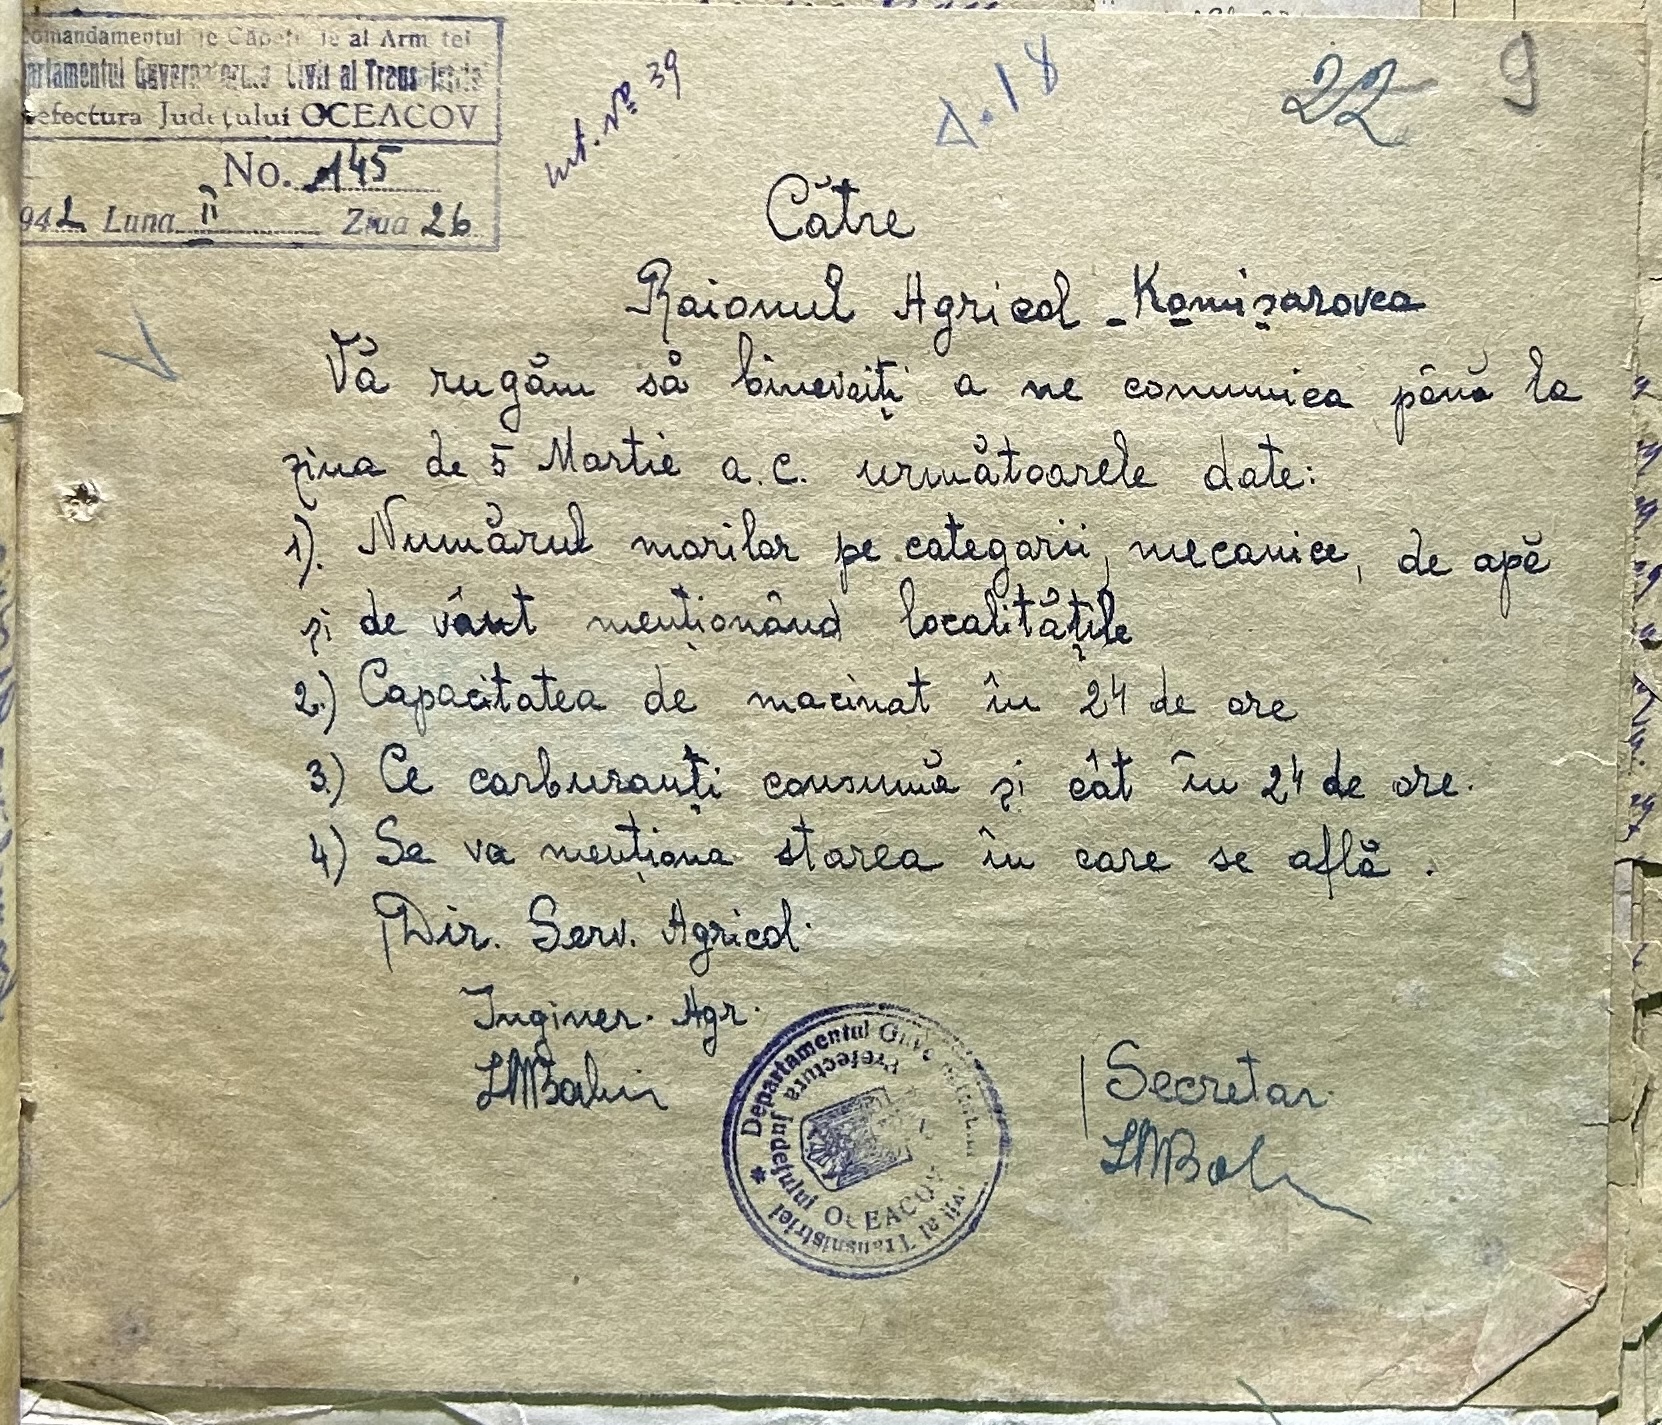 Comandamentul de Căpetenie al Armatei
Departamentul Guvernatorului Civil al Transnistriei
Prefectura Județului OCEACOV
No. 145
1942 Luna II Ziua 26
int. № 39
Δ. 18
22 9
Către
Raionul Agricol - Komișarovca
Vă rugăm să binevoiți a ne comunica până la
ziua de 5 Martie a.c. următoarele date:
1). Numărul morilor pe categorii, mecanice, de apă
și de vânt menționând localitățile
2.) Capacitatea de macinat în 24 de ore
3.) Ce carburanți consumă și cât în 24 de ore.
4.) Se va menționa starea în care se află.
Dir. Serv. Agricol.
Inginer. Agr.
Secretar.
Departamentul Guvernatorului Civil al Transnistriei
Prefectura Județului
OCEACOV